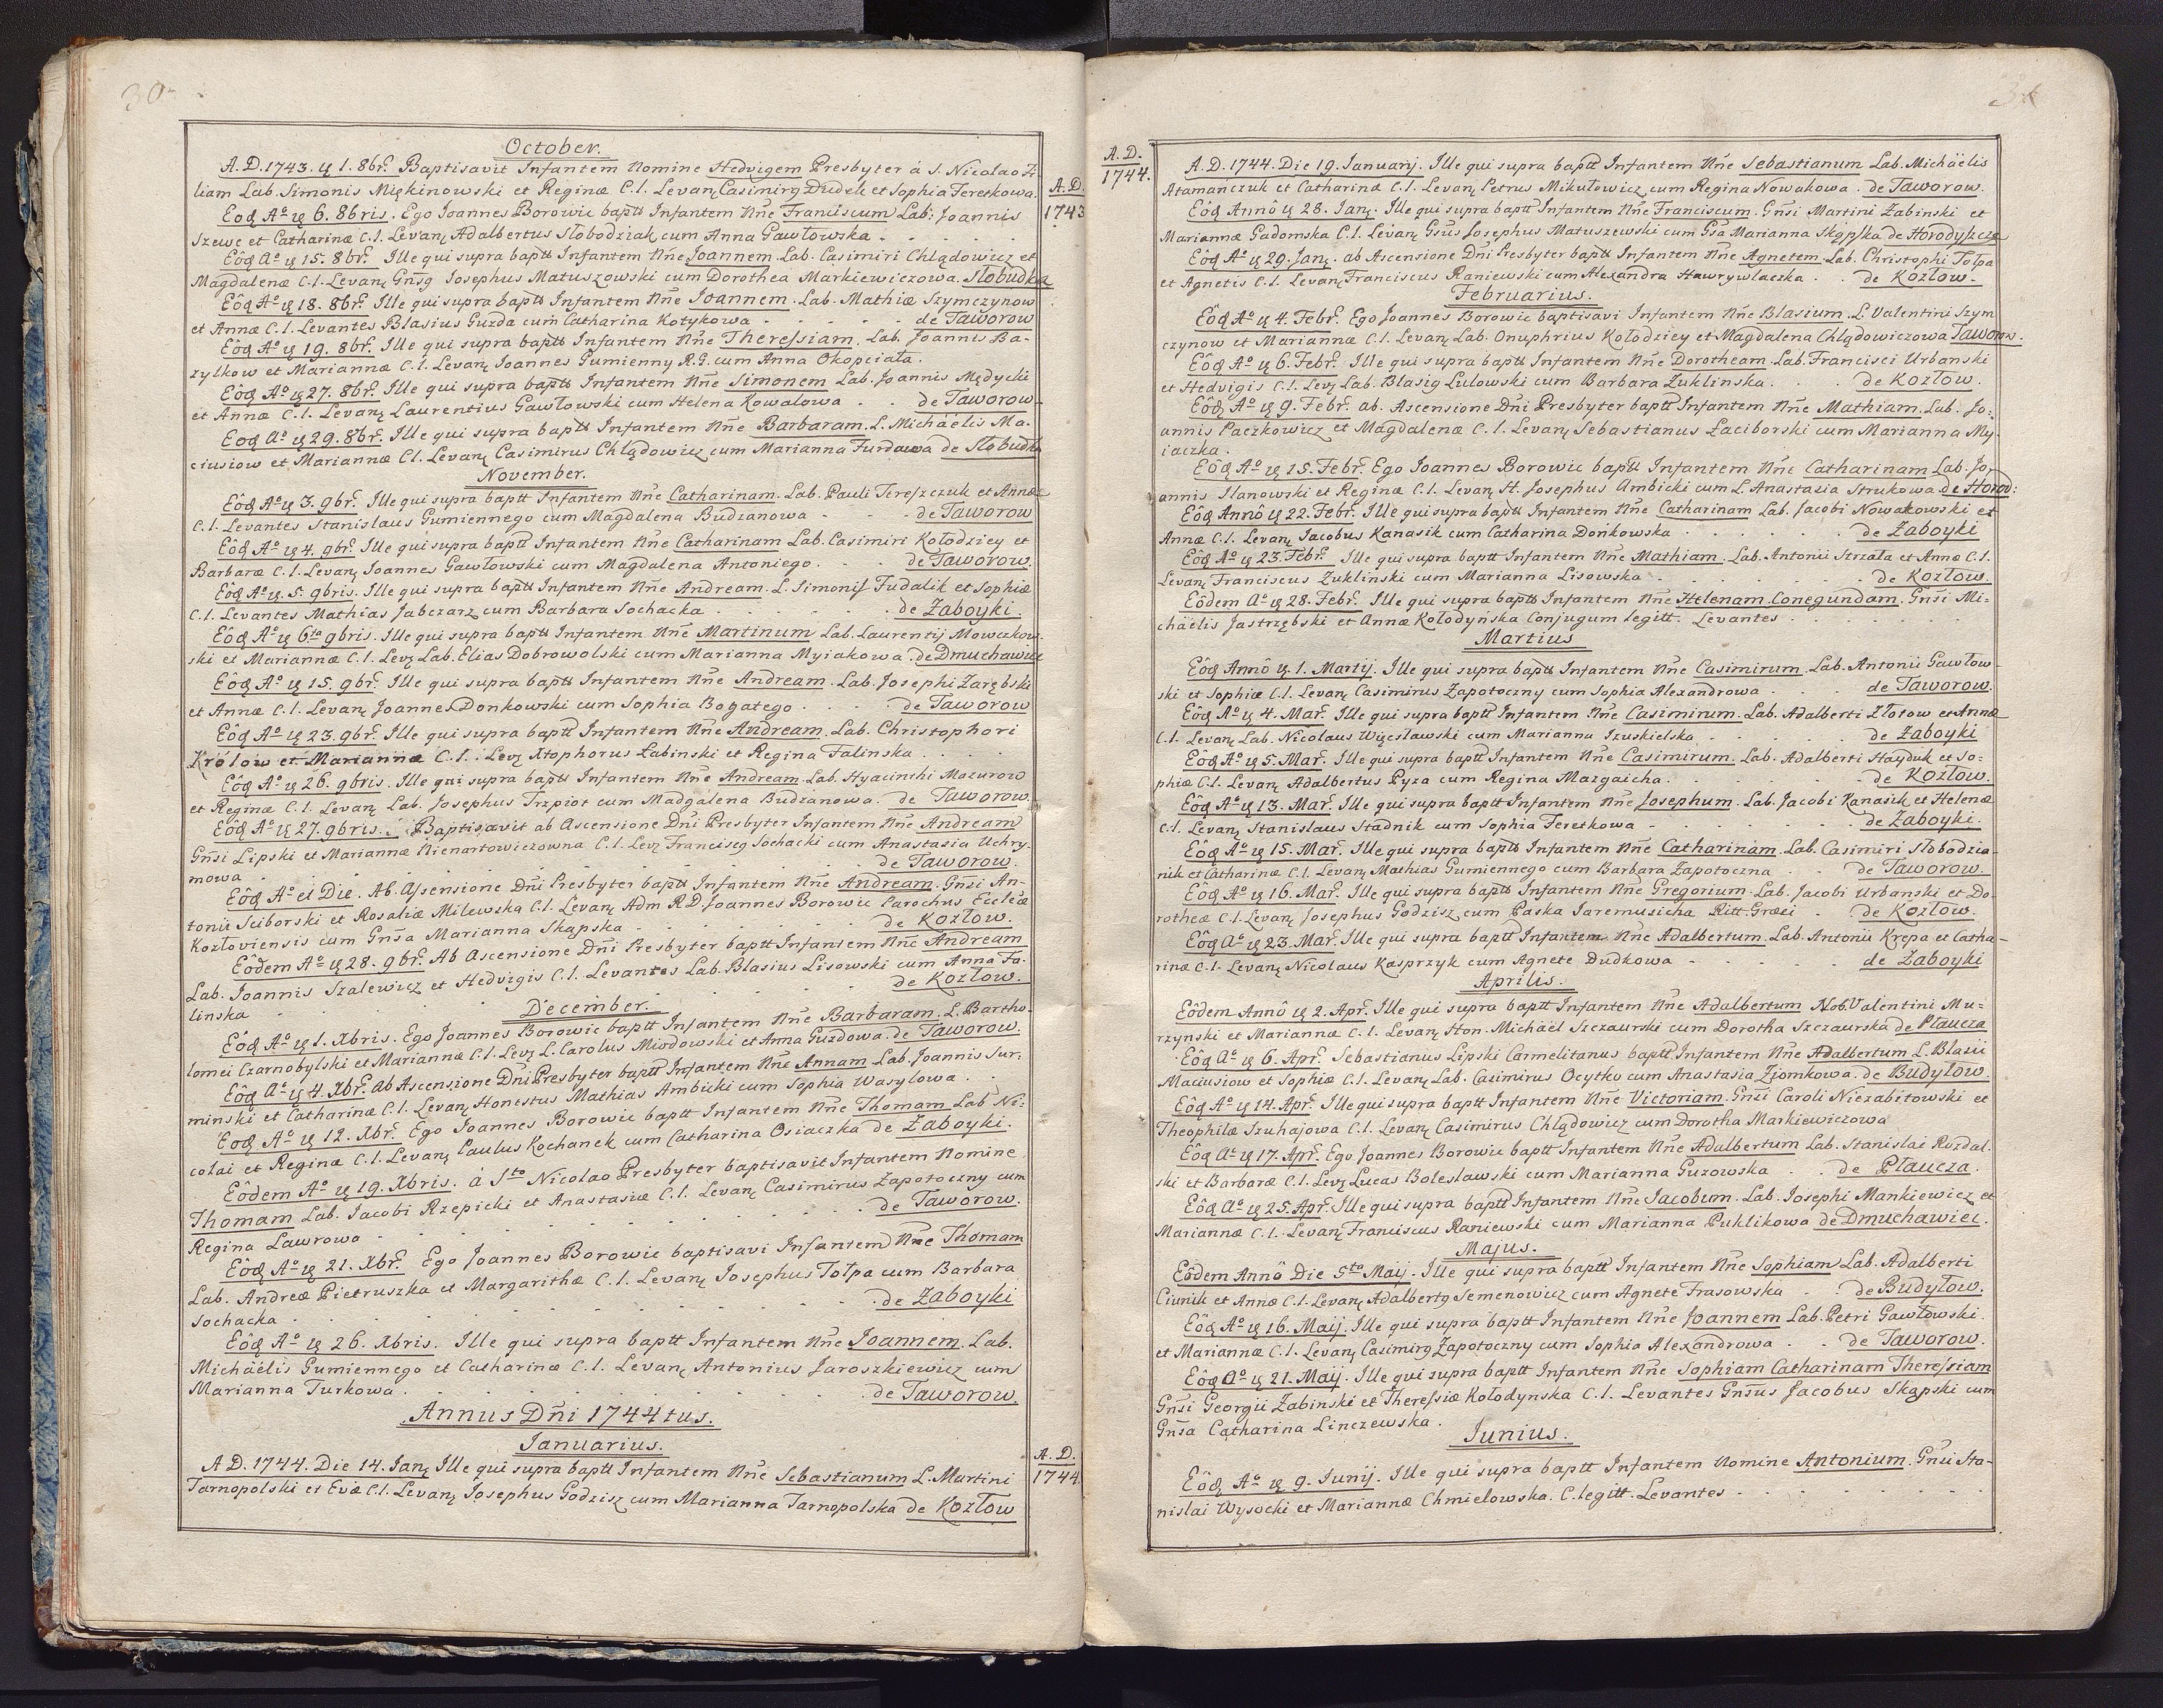 30
October.
A.D. 1743. 1. 8br. Baptisavit Infantem Nomine Hedvigem Presbyter à S. Nicolao
liam Lab. Simonis Miękinowski et Reginæ C.l. Levan Casimirg Dudek et Sophia Feretkowa.
A.D.
1743
Eod Aº 6. 8bris. Ego Joannes Borowic baptt Infantem Nne Franciscum Lab: Joannis
Szewc et Catharinæ C.l. Levan Adalbertus Słobodziak cum Anna Gawłowska
Eôd Aº 15. 8br. Ille qui supra baptt Infantem Nne Joannem. Lab. Casimiri Chlądowicz et
Magdalenæ C.l. Levan Gnsg Josephus Matuszowski cum Dorothea Markiewiczowa. Słobudka
Eôd Aº 18. 8br. Ille qui supra baptt Infantem Nne Joannem. Lab. Mathiæ Szymczynow
et Annæ C.l. Levantes Blasius Guzda cum Catharina Kotykowa de Taworow
Eôd Aº 19. 8br. Ille qui supra baptt Infantem Nne Theressiam. Lab. Joannis Ba-
zylkow et Mariannæ C.l. Levan Joannes Gumienny R.G. cum Anna Okopciata.
Eôd Aº 27. 8br. Ille qui supra baptt Infantem Nne Simonem Lab. Joannis Mędycki
et Annæ C.l. Levan Laurentius Gawłowski cum Helena Kowalowa de Taworow
Eod Aº 29. 8br. Ille qui supra baptt Infantem Nne Barbaram. L. Michäelis Ma-
ciusiow et Mariannæ Cl. Levan Casimirus Chlądowicz cum Marianna Furdawa de Słobudka
November.
Eôd Aº 3. 9br. Ille qui supra baptt Infantem Nne Catharinam. Lab. Pauli Tereszczuk et Annæ
C.l. Levantes Stanislaus Gumiennego cum Magdalena Budzanowa de Taworow
Eôd Aº 4. 9br. Ille qui supra baptt Infantem Nne Catharinam Lab. Casimiri Kołodziey et
Barbaræ C.l. Levan Joannes Gawłowski cum Magdalena Antoniego. de Taworow.
Eôd Aº 5. 9bris. Ille qui supra baptt Infantem Nne Andream. L. Simonis Fudalik et Sophiæ
C.l. Levantes Mathias Jabczarz cum Barbara Sochacka de Zaboyki.
Eôd Aº 6to 9bris. Ille qui supra baptt Infantem Nne Martinum Lab. Laurentij Mowczkow-
ski et Mariannæ C.l. Lev Lab. Elias Dobrowolski cum Marianna Myiakowa. de Dmuchawice
Eôd Aº 15. 9br. Ille qui supra baptt Infantem Nne Andream. Lab. Josephi Zarębski
et Annæ C.l. Levan Joannes Donkowski cum Sophia Bogatego de Taworow
Eôd Aº 23. 9br. Ille qui supra baptt Infantem Nne Andream. Lab. Christophori
Krółow et Mariannæ C.l. Lev Xtophorus Łabinski et Regina Falinska
Eôd Aº 26. 9bris. Ille qui supra baptt Infantem Nne Andream. Lab. Hyacinthi Mazurow
et Reginæ C.l. Levan Lab. Josephus Trzpiot cum Madgalena Budzanowa. de Taworow.
Eôd Aº 27. 9bris. Baptisavit ab Ascensione Dni Presbyter Infantem Nne Andream
Gnsi Lipski et Mariannæ Nienartowiczowna C.l. Lev Franciscg Sochacki cum Anastasia Uchry-
mowa de Taworow.
Eôd Aº et Die. Ab. Assensione Dni Presbyter baptt Infantem Nne Andream. Gnsi An-
tonii Sciborski et Rosaliæ Milewska C.l. Levan Adm R.D. Joannes Borowic Parochus Eccleæ
Kozłoviensis cum Gnsa Marianna Skąpska de Kozłow.
Eôdem Aº 28. 9br. Ab Ascensione Dni Presbyter baptt Infantem Nne Andream
Lab. Joannis Szalewicz et Hedvigis C.l. Levantes Lab. Blasius Lisowski cum Anna Fa-
linska de Kozłow.
December.
Eôd Aº 1. Xbris. Ego Joannes Borowic baptt Infantem Nne Barbaram. L. Bartho-
lomei Czarnobylski et Mariannæ C.l. Lev L. Carolus Miodowski et Anna Guzdowa. de Taworow.
Eôd Aº 4. Xbr. ab Ascensione Dni Presbyter baptt Infantem Nne Annam Lab. Joannis Sur-
minski et Catharinæ C.l. Levan Honestus Mathias Ambicki cum Sophia Wasylowa.
Eod Aº 12. Xbr. Ego Joannes Borowic baptt Infantem Nne Thomam Lab Ni-
colai et Reginæ C.l. Levan Paulus Kochanek cum Catharina Osiaczka de Zaboyki.
Eôdem Aº 19. Xbris. à Sto Nicolao Presbyter baptisavit Infantem Nomine
Thomam Lab. Jacobi Rzepicki et Anastasiæ C.l. Levan Casimirus Zapotoczny cum
Regina Lawrowa de Taworow.
Eôd Aº 21. Xbr. Ego Joannes Borowic baptisavi Infantem Nne Thomam
Lab. Andreæ Pietruszka et Margarithæ C.l. Levan Josephus Tołpa cum Barbara
Sochacka de Zaboyki
Eôd Aº 26. Xbris. Ille qui supra baptt Infantem Nne Joannem. Lab.
Michäelis Gumiennego et Catharinæ C.l. Levan Antonius Jaroszkiewicz cum
Marianna Turkowa de Taworow.
Annus Dni 1744tus.
Januarius.
A.D.
1744.
A D. 1744. Die 14. Jan Ille qui supra baptt Infantem Nne Sebastianum L. Martini
Tarnopolski et Evæ C.l. Levan Josephus Godzisz cum Marianna Tarnopolska de Kozłow
A.D.
1744.
A.D. 1744. Die 19. Januarij. Ille qui supra baptt Infantem Nne Sebastianum Lab. Michäelis
Atamanczuk et Catharinæ C.l. Levan Petrus Mikułowicz cum Regina Nowakowa. de Taworow.
Eôd Annô 28. Jan. Ille qui supra baptt Infantem Nne Franciscum. Gnsi Martini Zabinski et
Mariannæ Gadomska C.l. Levan Gsus Josephus Matuszewski cum Gsa Marianna Skąpska de Horodyszcze
Eôd Aº 29. Jan. ab Ascensione Dni Presbyter baptt Infantem Nne Agnetem. Lab. Christophi Tołpa
et Agnetis C.l. Levan Franciscus Raniewski cum Alexandra Hawrywlaczka de Kozłow.
Februarius.
Eôd Aº 4. Febr. Ego Joannes Borowic baptisavi Infantem Nne Blasium. L. Valentini Szym
czynow et Mariannæ C.l. Levan Lab. Onuphrius Kołodziey et Magdalena Chlądowiczowa Taworow.
Eôd Aº 6. Febr. Ille qui supra baptt Infantem Nne Dorotheam. Lab. Francisci Urbanski
et Hedvigis C.l. Lev Lab. Blasig Lulowski cum Barbara Zuklinska. de Kozłow.
Eôd Aº 9. Febr. ab. Ascensione Dni Presbyter baptt Infantem Nne Mathiam. Lab. Jo-
annis Paczkowicz et Magdalenæ C.l. Levan Sebastianus Laciborski cum Marianna My-
iaczka.
Eôd Aº 15. Febr. Ego Joannes Borowic baptt Infantem Nne Catharinam Lab. Jo-
annis Ilanowski et Reginæ C.l. Levan H. Josephus Ambicki cum L. Anastasia Strukowa. de Horod:
Eôd Annô 22. Febr. Ille qui supra baptt Infantem Nne Catharinam Lab. Jacobi Nowakowski et
Annæ C.l. Levan Jacobus Kanasik cum Catharina Donkowska de Zaboyki
Eôd Aº 23. Febr. Ille qui supra baptt Infantem Nne Mathiam. Lab. Antonii Strzała et Annæ C.l.
Levan Franciscus Zuklinski cum Marianna Lisowska de Kozłow.
Eôdem Aº 28. Febr. Ille qui supra baptt Infantem Nne Helenam Conegundam. Gnsi Mi-
chäelis Jastrzębski et Annæ Kołodyńska Conjugum legitt. Levantes
Martius
Eôd Annô 1. Martij. Ille qui supra baptt Infantem Nne Casimirum. Lab. Antonii Gawłow-
ski et Sophiæ C.l. Levan Casimirus Zapotoczny cum Sophia Alexandrowa de Taworow.
Eôd Aº 4. Mar. Ille qui supra baptt Infantem Nne Casimirum. Lab. Adalberti Złotow et Annæ
C.l. Levan Lab. Nicolaus Więcsławski cum Marianna Izuskielska de Zaboyki
Eôd Aº 5. Mar. Ille qui supra baptt Infantem Nne Casimirum. Lab. Adalberti Hayduk et So-
phiæ C.l. Levan Adalbertus Pyza cum Regina Mazgaicha. de Kozłow.
Eôd Aº 13. Mar. Ille qui supra baptt Infantem Nne Josephum. Lab. Jacobi Kanasik et Helenæ
C.l. Levan Stanislaus Stadnik cum Sophia Feretkowa de Zaboyki.
Eôd Aº 15. Mar. Ille qui supra baptt Infantem Nne Catharinam. Lab. Casimiri Słobodzia-
nik et Catharinæ C.l. Levan Mathias Gumiennego cum Barbara Zapotoczna de Taworow.
Eôd Aº 16. Mar. Ille qui supra baptt Infantem Nne Gregorium. Lab. Jacobi Urbanski et Do-
rotheæ C.l. Levan Josephus Godzisz cum Paska Jaremusicha Ritt. Græci de Kozłow.
Eôd Aº 23. Mar. Ille qui supra baptt Infantem Nne Adalbertum. Lab. Antonii Krepa et Catha-
rinæ C.l. Levan Nicolaus Kasprzyk cum Agnete Dudkowa de Zaboyki
Aprilis.
Eôdem Annô 2. Apr. Ille qui supra baptt Infantem Nne Adalbertum Nob. Valentini Mu-
rzynski et Mariannæ C.l. Levan Hon. Michäel Szczaurski cum Dorotha Szczaurska de Płaucza
Eôd Aº 6. Apr. Sebastianus Lipski Carmelitanus baptt Infantem Nne Adalbertum L. Blasii
Maciusiow et Sophiæ C.l. Levan Lab. Casimirus Ocytko cum Anastasia Ziomkowa. de Budyłow.
Eôd Aº 14. Apr. Ille qui supra baptt Infantem Nne Victoriam. Gnsi Caroli Niezabitowski et
Theophilæ Izuhajowa C.l. Levan Casimirus Chlądowicz cum Dorotha Markiewiczowa
Eôd Aº 17. Apr. Ego Joannes Borowic baptt Infantem Nne Adalbertum Lab. Stanislai Rozdal-
ski et Barbaræ C.l. Lev Lucas Bolesławski cum Marianna Guzowska de Płaucza.
Eôd Aº 25. Apr. Ille qui supra baptt Infantem Nne Jacobum. Lab. Josephi Mankiewicz et
Mariannæ C.l. Levan Franciscus Raniewski cum Marianna Puhlikowa de Dmuchawiec.
Majus.
Eôdem Annô Die 5to Maij. Ille qui supra baptt Infantem Nne Sophiam Lab. Adalberti
Ciunik et Annæ C.l. Levan Adalbertg Semenowicz cum Agnete Frasowska de Budyłow.
Eôd Aº 16. Maij. Ille qui supra baptt Infantem Nne Joannem Lab. Petri Gawłowski.
et Mariannæ C.l. Levan Casimirg Zapotoczny cum Sophia Alexandrowa de Taworow.
Eôd Aº 21. Maij. Ille qui supra baptt Infantem Nne Sophiam Catharinam Theressiam
Gnsi Georgii Zabinski et Theressiæ Kołodynska C.l. Levantes Gnsus Jacobus Skąpski cum
Gnsa Catharina Linczewska.
Junius.
Eôd Aº 9. Junij. Ille qui supra baptt Infantem Nomine Antonium. Gnsi Sta-
nislai Wysocki et Mariannæ Chmielowska. C. legitt. Levantes